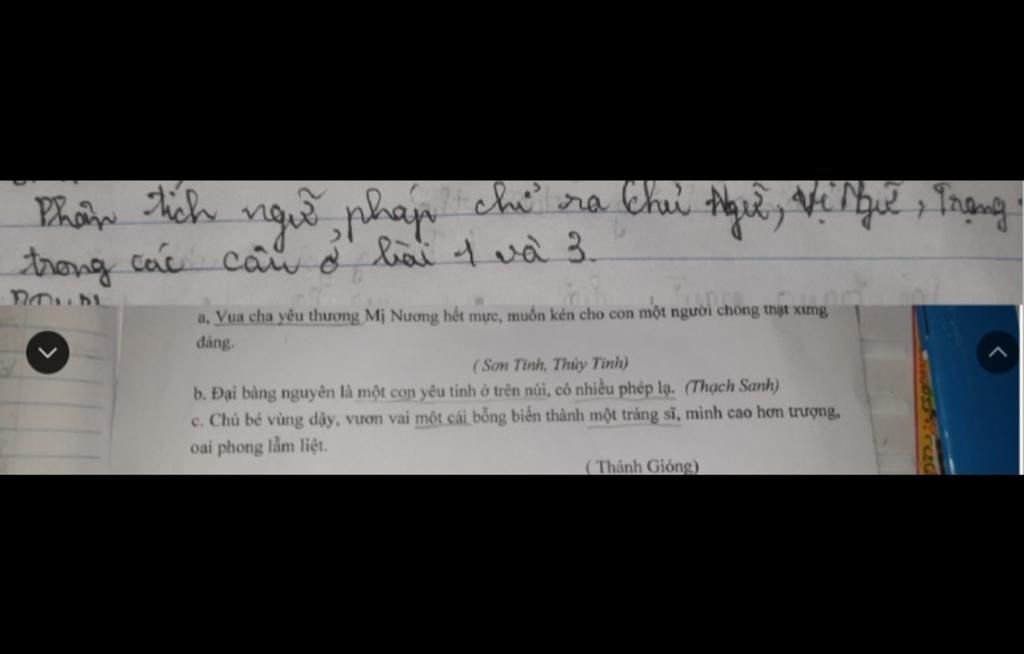 Phân tích ngữ pháp chỉ ra Chủ Ngữ, Vị Ngữ, Trạng
trong các câu ở bài 1 và 3.
a, Vua cha yêu thương Mị Nương hết mực, muốn kén cho con một người chồng thật xứng
đáng.
( Sơn Tinh, Thủy Tinh)
b. Đại bàng nguyên là một con yêu tinh ở trên núi, có nhiều phép lạ. (Thạch Sanh)
c. Chú bé vùng dậy, vươn vai một cái bỗng biến thành một tráng sĩ, mình cao hơn trượng,
oai phong lẫm liệt.
( Thánh Gióng)